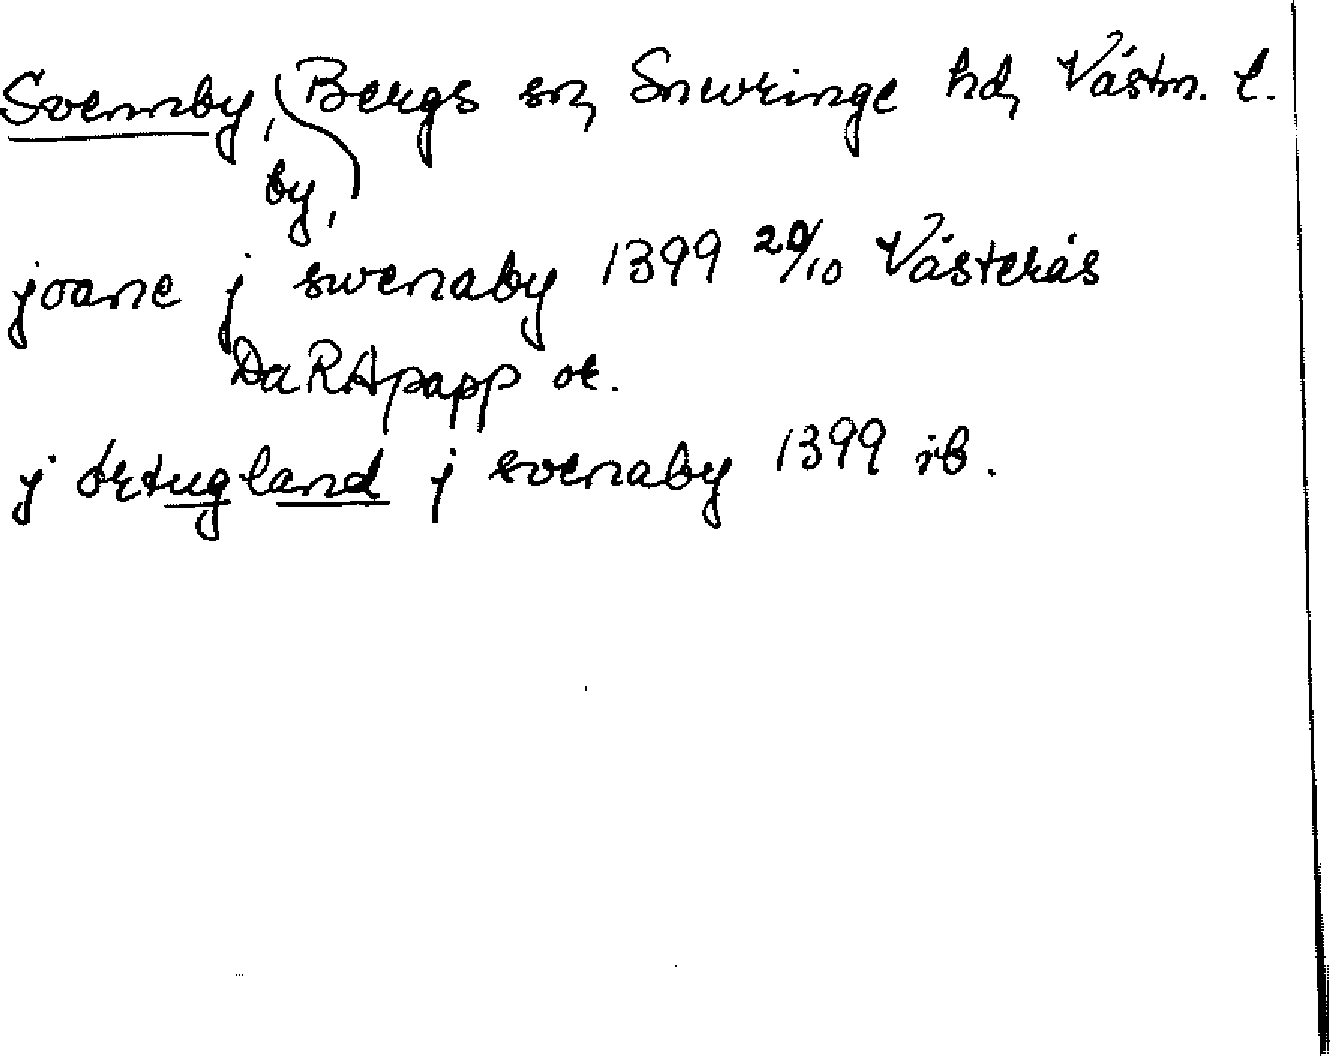 Svenmby, by, Bergs sn, Snevringe hd, Västm. l.
joane j swenaby 1399 20/10 Västerås
Da RApapp or.
j örtugland j svenaby 1399 ib.